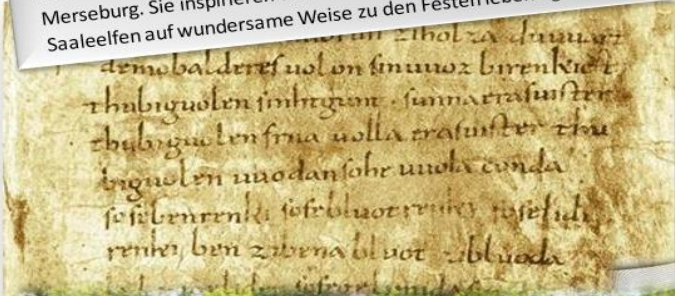 Merseburg. Sie inspirieren
Saaleelfen auf wundersame Weise zu den Festen
uorun ziholza du uuart
demobalderes uolon sinuuoz birenkict
thubiguolen sinhtgunt · sunnaerasuister
thubiguolen friia uolla erasuister thu
biguolen uuodan sohe uuola conda
sosebenrenki sosebluotrenki soselidi
renki ben zibena bluot zibluoda